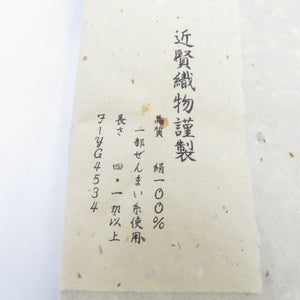 近賢織物謹製
品質 絹一〇〇%
一部ぜんまい糸使用
長さ 四・一m以上